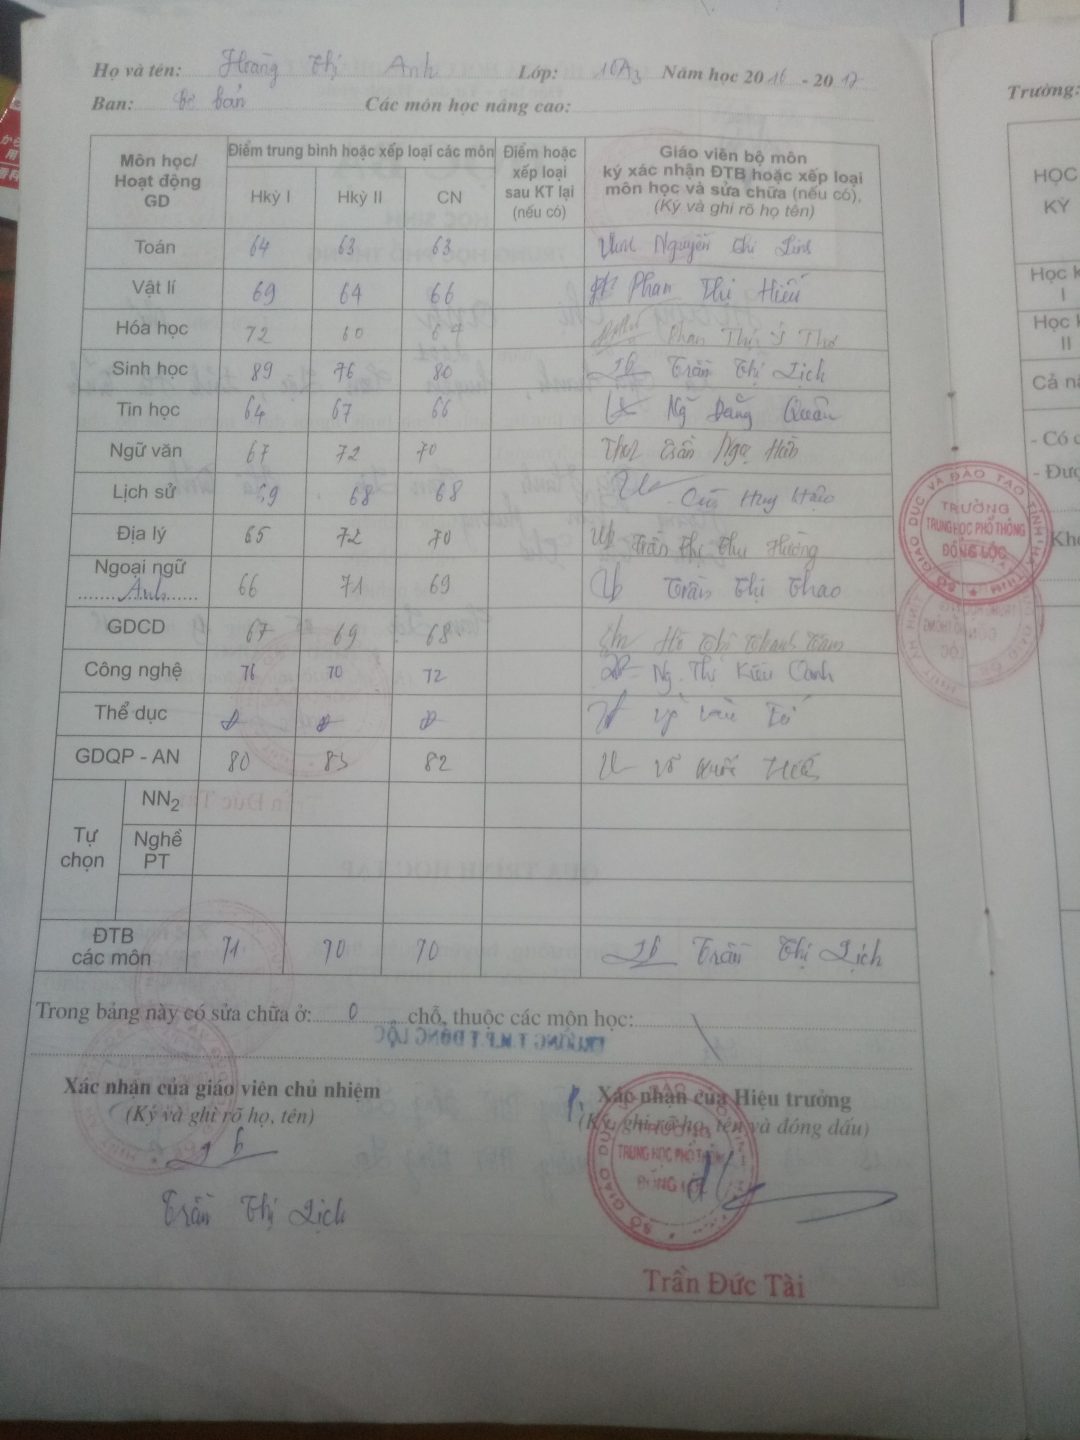 Họ và tên: Hoàng Thị Anh Lớp: 10A3 Năm học 2016 - 2017
Ban: Cơ bản Các môn học nâng cao:
Môn học/ Hoạt động GD
Điểm trung bình hoặc xếp loại các môn
Hkỳ I Hkỳ II CN
Điểm hoặc xếp loại sau KT lại (nếu có)
Giáo viên bộ môn
ký xác nhận ĐTB hoặc xếp loại
môn học và sửa chữa (nếu có),
(Ký và ghi rõ họ tên)
Toán 64 63 63 Nguyễn Chí Linh
Vật lí 69 64 66 Phan Thị Hiếu
Hóa học 72 60 64 Phan Thị Ý Thơ
Sinh học 89 76 80 Trần Thị Lịch
Tin học 64 67 66 Ng Đăng Quân
Ngữ văn 67 72 70 Trần
Lịch sử 69 68 68 Huy
Địa lý 65 72 70 Trần Thị Thu Hường
Ngoại ngữ
Anh 66 71 69 Trần Thị Thao
GDCD 67 69 68 Hồ Thị Thanh Tâm
Công nghệ 76 70 72 Ng. Thị Kiều Oanh
Thể dục Đ Đ Đ
GDQP - AN 80 83 82 Võ
Tự chọn
NN2
Nghề PT
ĐTB các môn 71 70 70 Trần Thị Lịch
Trong bảng này có sửa chữa ở: 0 chỗ, thuộc các môn học:
TRƯỜNG T.H.P.T ĐỒNG LỘC
Xác nhận của giáo viên chủ nhiệm
(Ký và ghi rõ họ, tên)
Trần Thị Lịch
Xác nhận của Hiệu trưởng
(Ký, ghi rõ họ, tên và đóng dấu)
SỞ GIÁO DỤC VÀ ĐÀO TẠO TỈNH
TRƯỜNG
TRUNG HỌC PHỔ THÔNG
ĐỒNG LỘC
Trần Đức Tài
SỞ GIÁO DỤC VÀ ĐÀO TẠO TỈNH HÀ TĨNH
TRƯỜNG
TRUNG HỌC PHỔ THÔNG
ĐỒNG LỘC
Trường:
HỌC
KỲ
Học k
I
Học k
II
Cả nă
- Có c
- Đượ
Khe